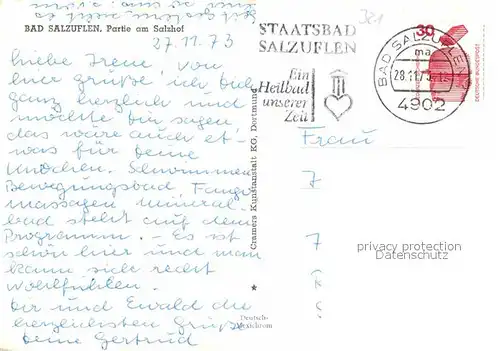 BAD SALZUFLEN, Partie am Salzhof
27.11.73
Liebe Irene von
hier grüße ich dich
ganz herzlich und
möchte dir sagen
das wäre auch et-
was für deine
Knochen. Schwimmen
Bewegungsbad Fango
massagen mineral-
bad steht auf dem
Programm. - Es ist
schön hier und man
kann sich recht
wohlfühlen.
Dir und Ewald die
herzlichsten Grüße
deine Gertrud
Cramers Kunstanstalt KG, Dortmund
Deutsche
STAATSBAD
SALZUFLEN
Ein
Heilbad
unserer
Zeit
321
BAD SALZUFLEN 1
ma
28.11.73
4902
30
DEUTSCHE BUNDESPOST
Frau
privacy protection
Datenschutz